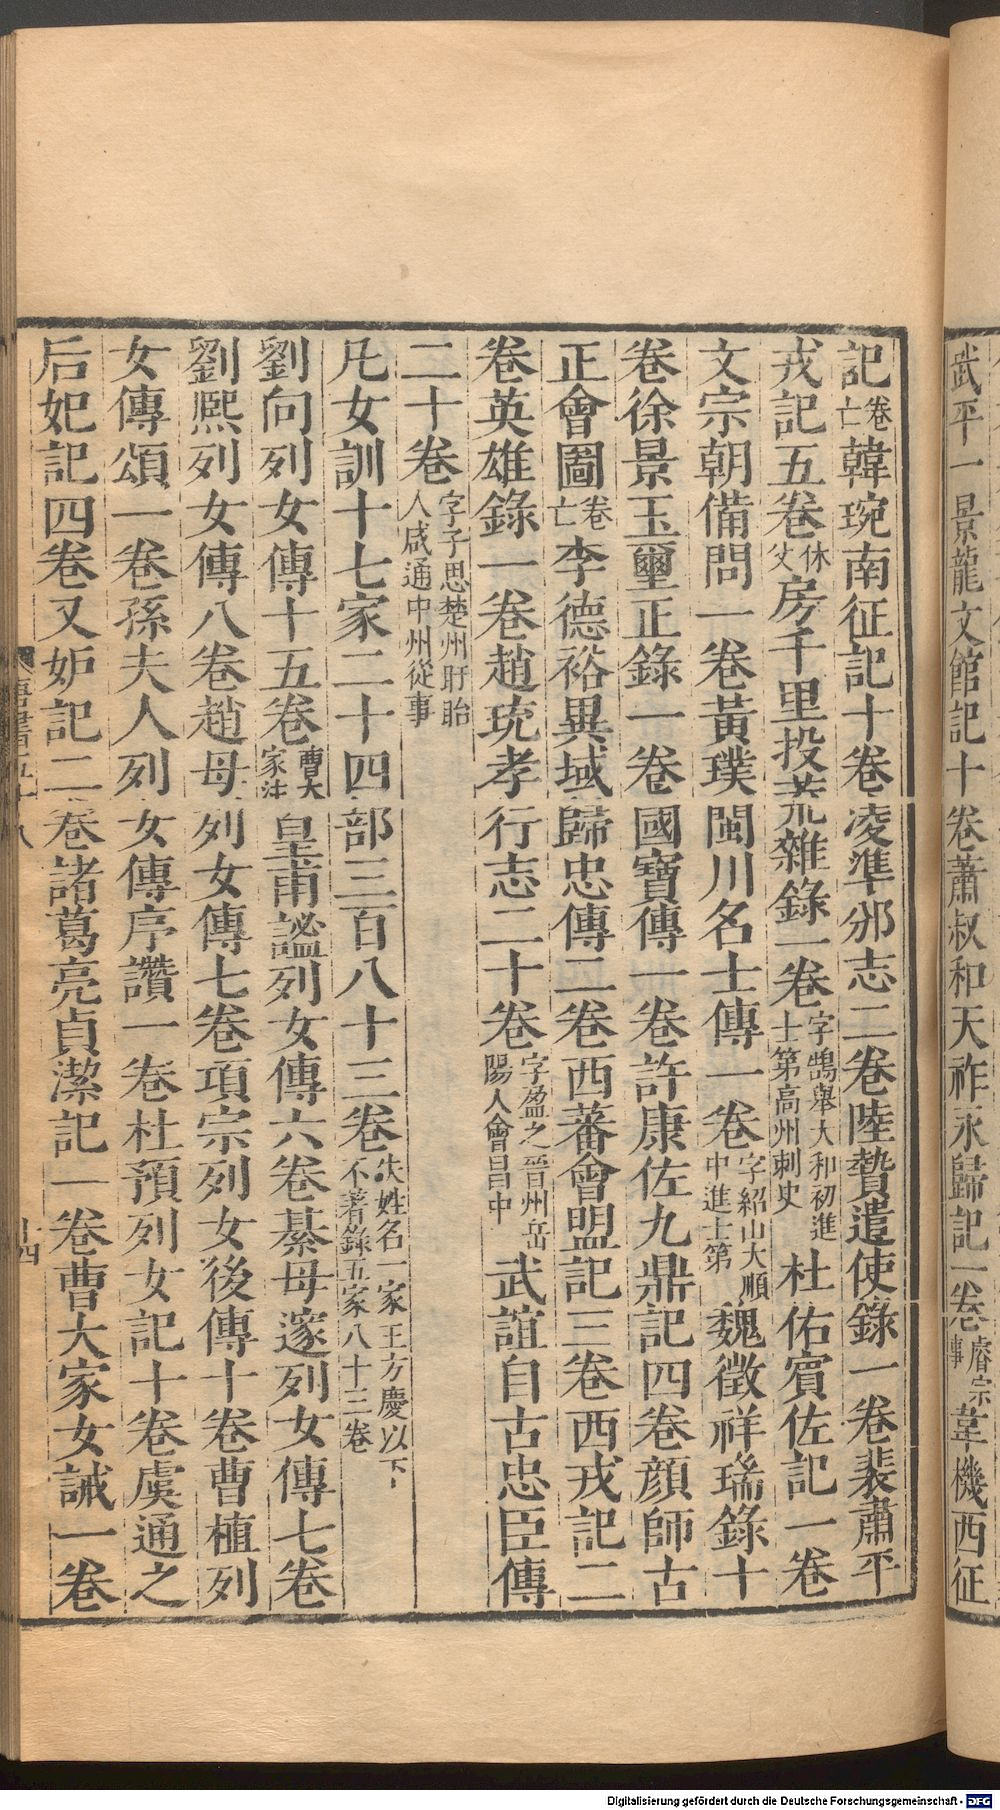 武平一景龍文館記十卷蕭叔和天祚永歸記一卷睿宗事韋機西征
記卷亡韓琬南征記十卷凌準邠志二卷陸贄遣使錄一卷裴肅平
戎記五卷休父房千里投荒雜錄一卷字鵠舉大和初進士第高州刺史杜佑賓佐記一卷
文宗朝備問一卷黃璞閩川名士傳一卷字紹山大順中進士第魏徵祥瑞錄十
卷徐景玉璽正錄一卷國寶傳一卷許康佐九鼎記四卷顏師古
正會圖卷亡李德裕異域歸忠傳二卷西蕃會盟記三卷西戎記二
卷英雄錄一卷趙珫孝行志二十卷字盈之晉州岳陽人會昌中武誼自古忠臣傳
二十卷字子思楚州盱眙人咸通中州從事
凡女訓十七家二十四部三百八十三卷失姓名一家王方慶以下不著錄五家八十三卷
劉向列女傳十五卷曹大家注皇甫謐列女傳六卷綦母邃列女傳七卷
劉熙列女傳八卷趙母列女傳七卷項宗列女後傳十卷曹植列
女傳頌一卷孫夫人列女傳序讚一卷杜預列女記十卷虞通之
后妃記四卷又妒記二卷諸葛亮貞潔記一卷曹大家女誡一卷
唐書五十八
十四
Digitalisierung gefördert durch die Deutsche Forschungsgemeinschaft - DFG